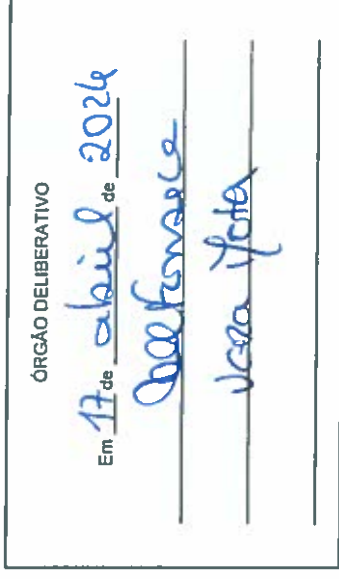 ÓRGÃO DELIBERATIVO
Em 17 de abril de 2024
Vera Mota